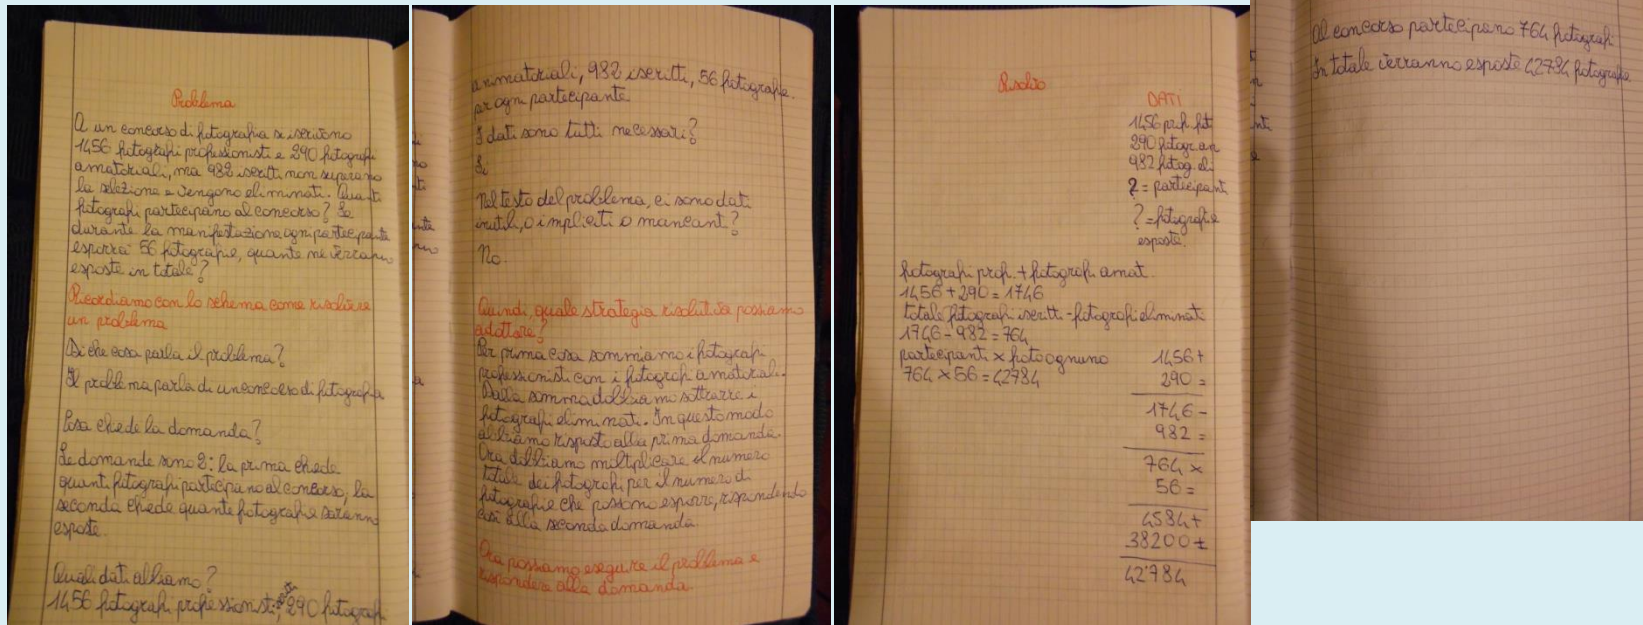 Problema
A un concorso di fotografia si iscrivono
1456 fotografi professionisti e 290 fotografi
amatoriali, ma 982 iscritti non superano
la selezione e vengono eliminati. Quanti
fotografi partecipano al concorso? Se
durante la manifestazione ogni partecipante
esporrà 56 fotografie, quante ne verranno
esposte in totale?
Ricordiamo con lo schema come risolvere
un problema
Di che cosa parla il problema?
Il problema parla di un concorso di fotografia
Cosa chiede la domanda?
Le domande sono 2: la prima chiede
quanti fotografi partecipano al concorso; la
seconda chiede quante fotografie saranno
esposte.
Quali dati abbiamo?
1456 fotografi professionisti, 290 fotografi
amatoriali, 982 iscritti, 56 fotografie
per ogni partecipante
I dati sono tutti necessari?
Si
Nel testo del problema, ci sono dati
inutili, o impliciti o mancanti?
No.
Quindi, quale strategia risolutiva possiamo
adottare?
Per prima cosa sommiamo i fotografi
professionisti con i fotografi amatoriali.
Dalla somma dobbiamo sottrarre i
fotografi eliminati. In questo modo
abbiamo risposto alla prima domanda.
Ora dobbiamo moltiplicare il numero
totale dei fotografi per il numero di
fotografie che possono esporre, rispondendo
così alla seconda domanda.
Ora possiamo eseguire il problema e
rispondere alla domanda.
Risolvo
DATI
1456 prof. fot
290 fotogr. am
982 fotog. eli
? = partecipanti
? = fotografie
esposte.
fotografi prof. + fotografi amat.
1456 + 290 = 1746
totale fotografi iscritti - fotografi eliminati
1746 - 982 = 764
partecipanti x foto ognuno
764 x 56 = 42784
1456 +
290 =
1746 -
982 =
764 x
56 =
4584 +
38200 =
42784
Al concorso partecipano 764 fotografi
In totale verranno esposte 42784 fotografie